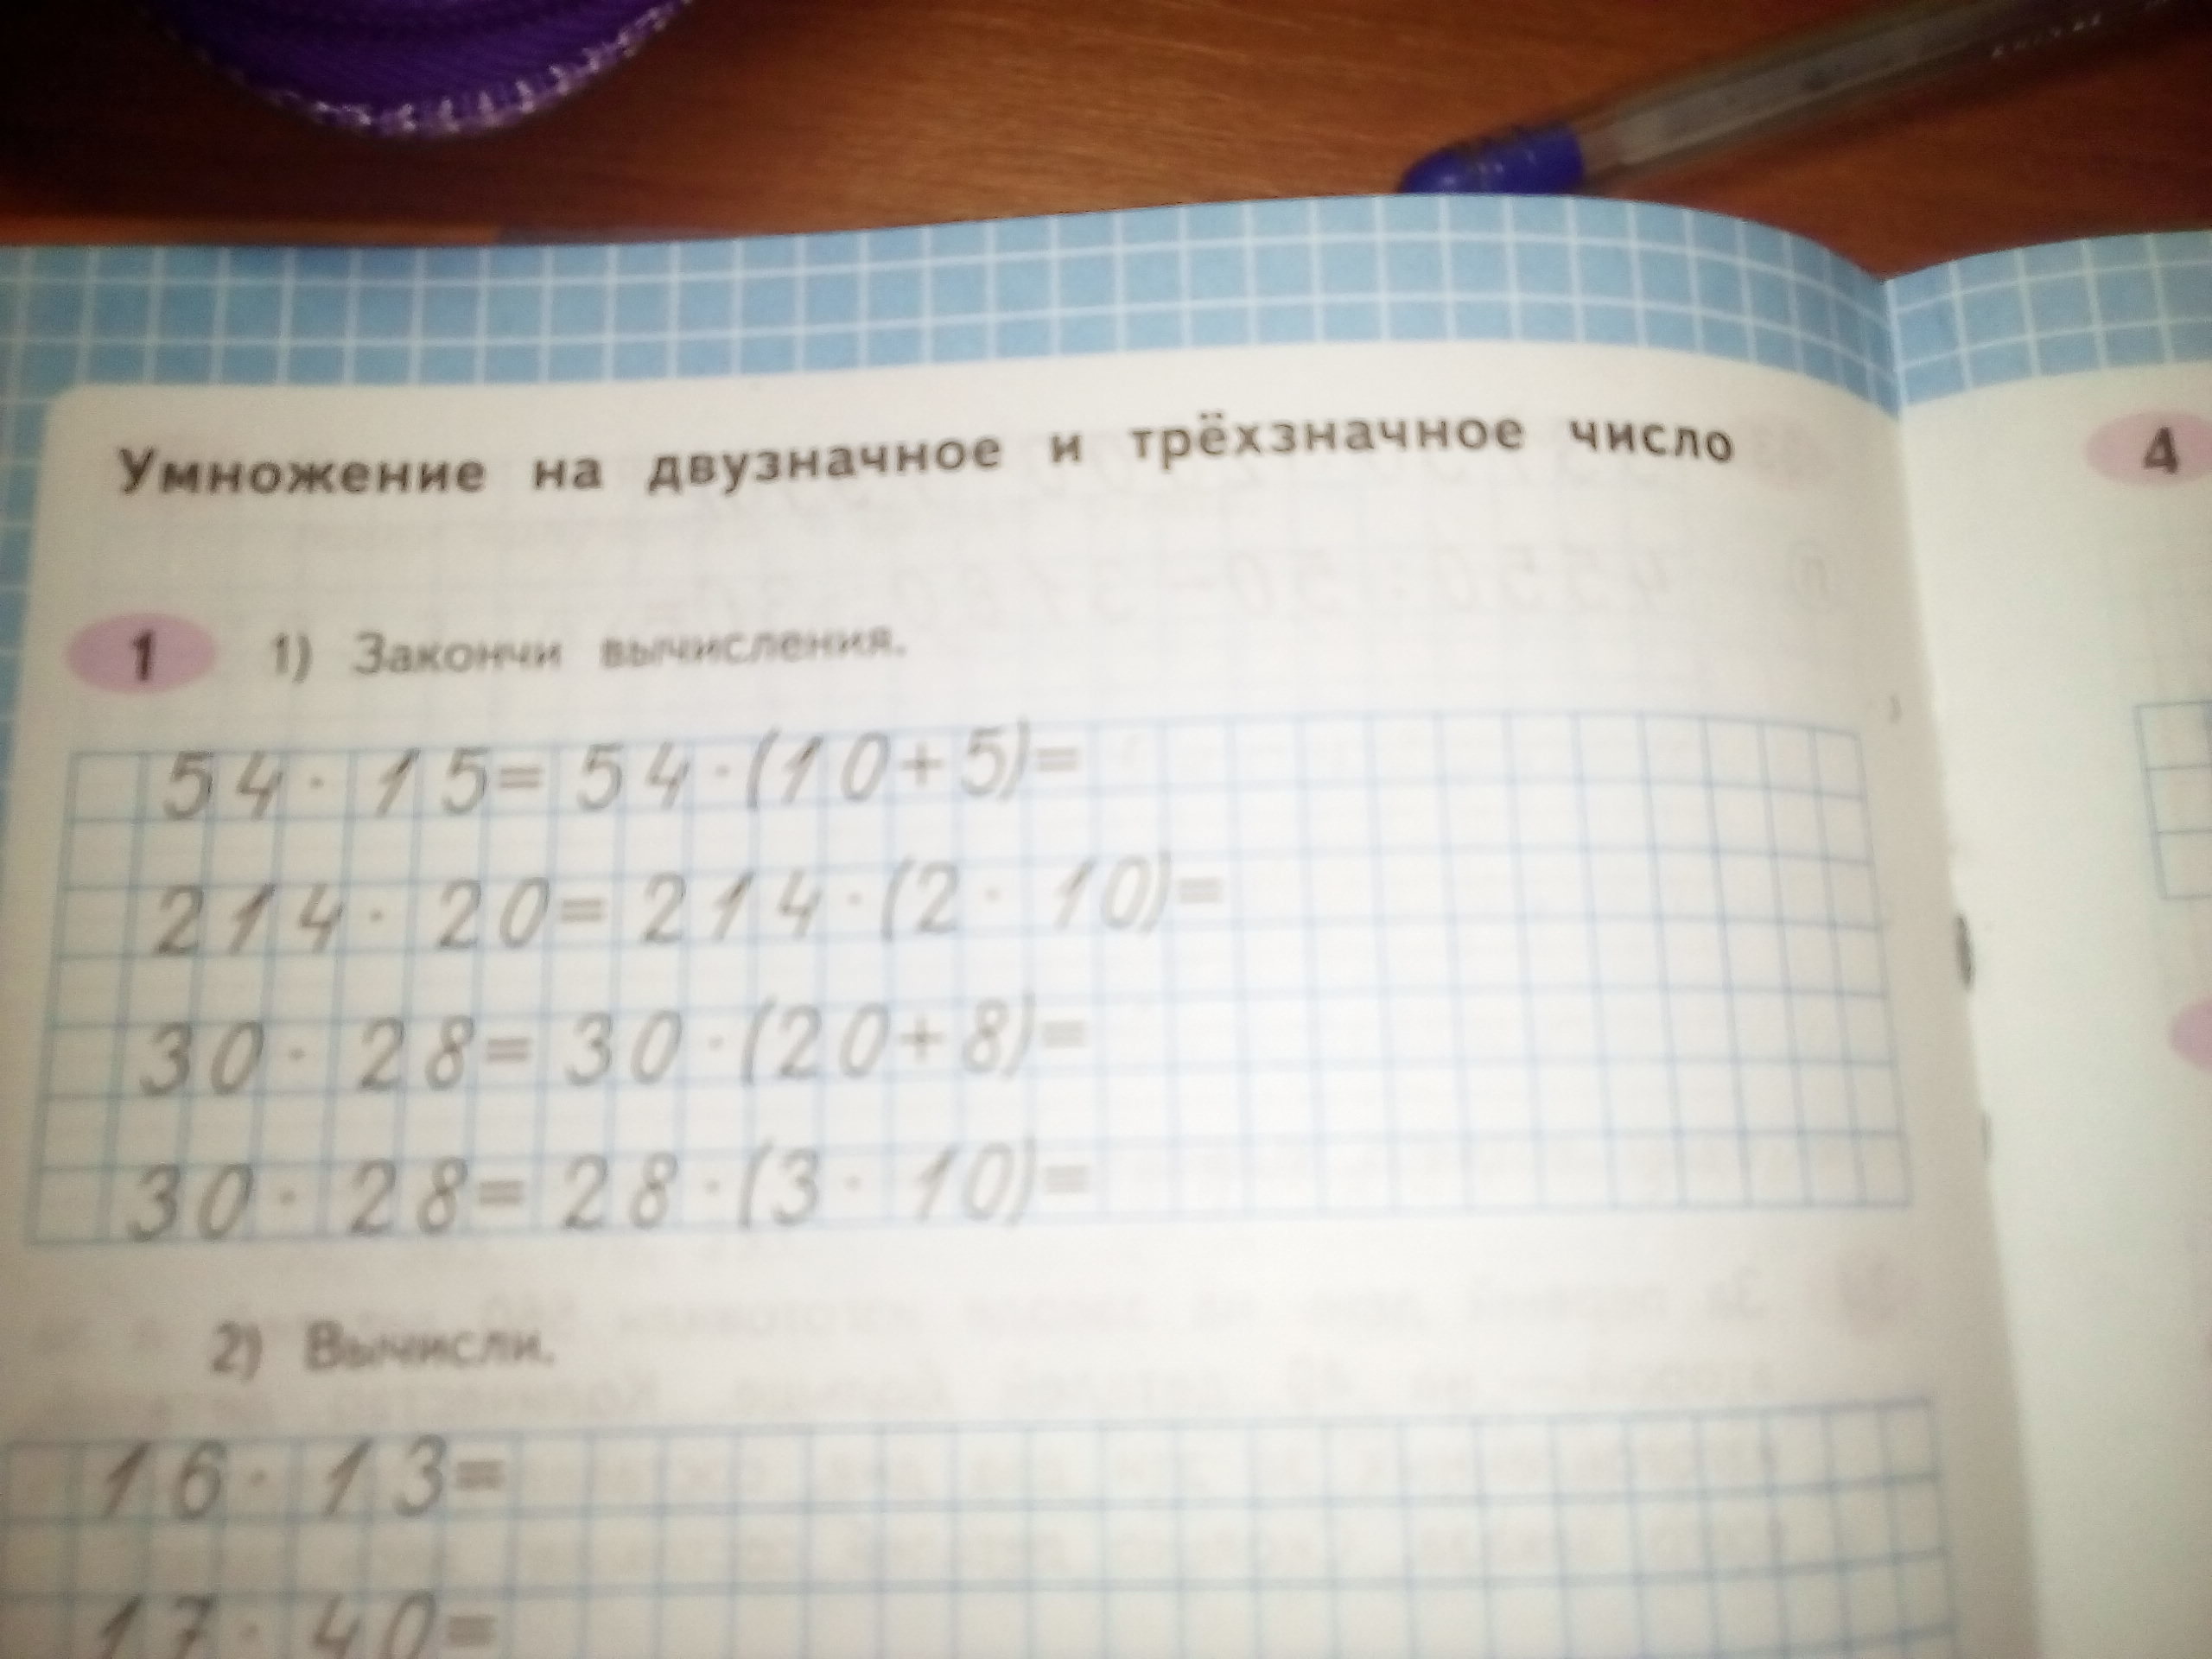 Умножение на двузначное и трёхзначное число
4
1 1) Закончи вычисления.
54 · 15 = 54 · (10 + 5) =
214 · 20 = 214 · (2 · 10) =
30 · 28 = 30 · (20 + 8) =
30 · 28 = 28 · (3 · 10) =
2) Вычисли.
16 · 13 =
17 · 40 =